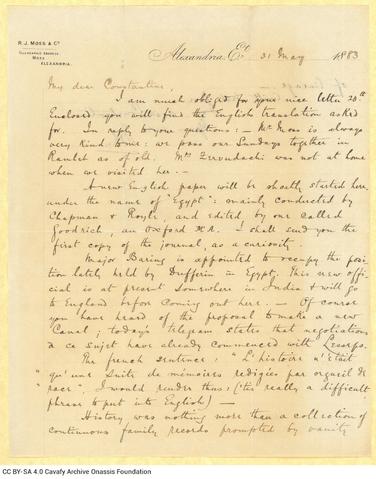 R. J. MOSS & Co
TELEGRAPHIC ADDRESS,
MOSS
ALEXANDRIA.
Alexandria, Et. 31 May 1883
My dear Constantine,
I am much obliged for your nice letter 20th
Enclosed you will find the English translation asked
for. In reply to your questions: — Mr Moss is always
very kind to me: we pass our Sundays together in
Ramleh as of old. Mrs Zervudachi was not at home
when we visited her. —
A new English paper will be shortly started here
under the name of "Egypt": mainly conducted by
Chapman & Royle, and edited by one called
Goodrich, an Oxford MA. I shall send you the
first copy of the journal, as a curiosity.
Major Baring is appointed to occupy the posi-
tion lately held by Dufferin in Egypt. This new offi-
cial is at present somewhere in India & will go
to England before coming out here. — Of course
you have heard of the proposal to make a new
Canal; today's telegram states that negotiations
à ce sujet have already commenced with Lesseps.
The french sentence: "L'histoire n'était
"qu'une suite de mémoires redigées par orgueil de
race". I would render thus: ('tis really a difficult
phrase to put into English) —
History was nothing more than a collection of
continuous family records prompted by vanity
CC BY-SA 4.0 Cavafy Archive Onassis Foundation